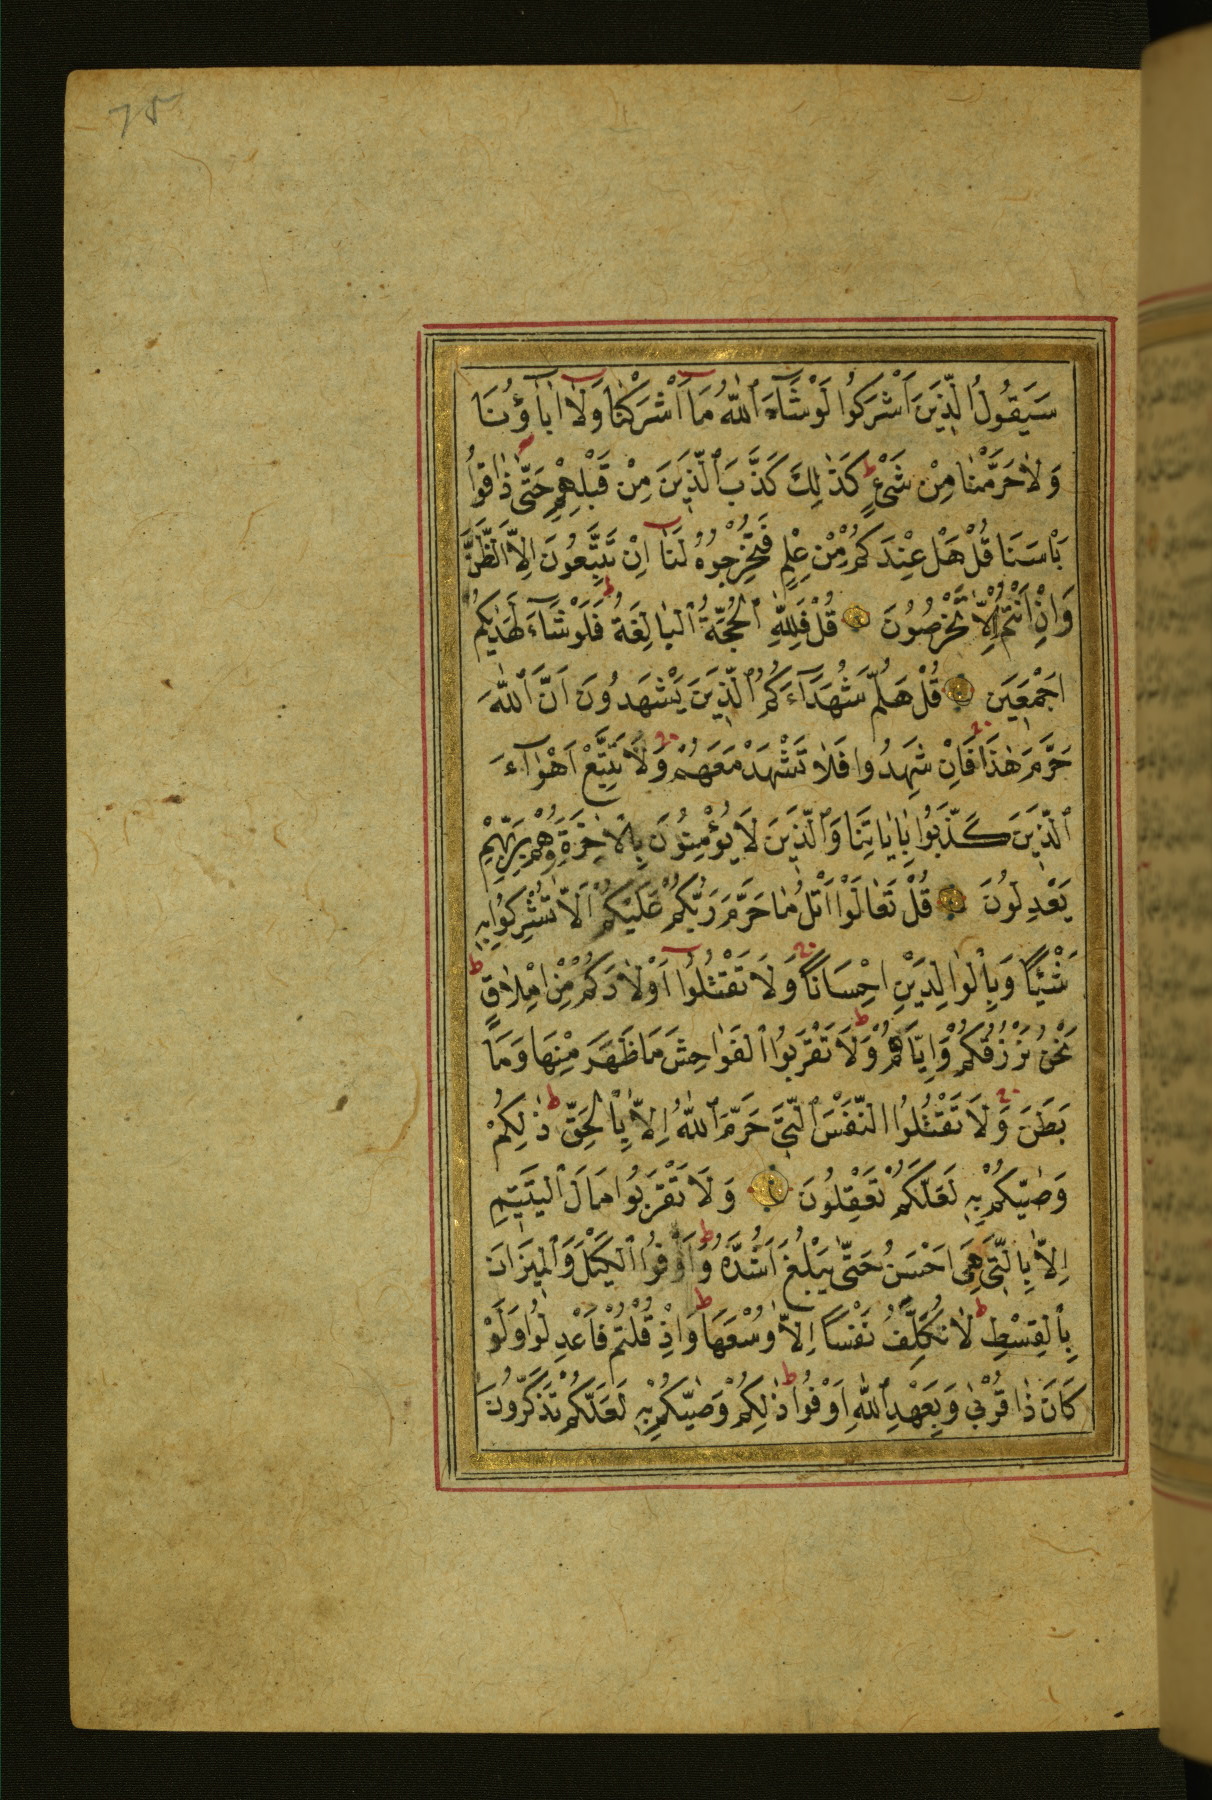 75
سَيَقُولُ الَّذِينَ اَشْرَكُوا لَوْ شَآءَ اللّٰهُ مَا اَشْرَكْنَا وَلَا اٰبَاؤُنَا
وَلَا حَرَّمْنَا مِنْ شَیْءٍ ط كَذٰلِكَ كَذَّبَ الَّذِينَ مِنْ قَبْلِهِمْ حَتّٰى ذَاقُوا
بَاْسَنَا قُلْ هَلْ عِنْدَكُمْ مِنْ عِلْمٍ فَتُخْرِجُوهُ لَنَا اِنْ تَتَّبِعُونَ اِلَّا الظَّنَّ
وَاِنْ اَنْتُمْ اِلَّا تَخْرُصُونَ قُلْ فَلِلّٰهِ الْحُجَّةُ الْبَالِغَةُ ط فَلَوْ شَآءَ لَهَدٰيكُمْ
اَجْمَعِينَ قُلْ هَلُمَّ شُهَدَآءَكُمُ الَّذِينَ يَشْهَدُونَ اَنَّ اللّٰهَ
حَرَّمَ هٰذَا فَاِنْ شَهِدُوا فَلَا تَشْهَدْ مَعَهُمْ وَلَا تَتَّبِعْ اَهْوَآءَ
الَّذِينَ كَذَّبُوا بِاٰيَاتِنَا وَالَّذِينَ لَا يُؤْمِنُونَ بِالْاٰخِرَةِ وَهُمْ بِرَبِّهِمْ
يَعْدِلُونَ قُلْ تَعَالَوْا اَتْلُ مَا حَرَّمَ رَبُّكُمْ عَلَيْكُمْ اَلَّا تُشْرِكُوا بِهِ
شَيْئًا وَبِالْوَالِدَيْنِ اِحْسَانًا وَلَا تَقْتُلُوا اَوْلَادَكُمْ مِنْ اِمْلَاقٍ ط
نَحْنُ نَرْزُقُكُمْ وَاِيَّاهُمْ ط وَلَا تَقْرَبُوا الْفَوَاحِشَ مَا ظَهَرَ مِنْهَا وَمَا
بَطَنَ وَلَا تَقْتُلُوا النَّفْسَ الَّتِي حَرَّمَ اللّٰهُ اِلَّا بِالْحَقِّ ط ذٰلِكُمْ
وَصّٰيكُمْ بِهِ لَعَلَّكُمْ تَعْقِلُونَ وَلَا تَقْرَبُوا مَالَ الْيَتِيمِ
اِلَّا بِالَّتِي هِيَ اَحْسَنُ حَتّٰى يَبْلُغَ اَشُدَّهُ ط وَاَوْفُوا الْكَيْلَ وَالْمِيزَانَ
بِالْقِسْطِ ط لَا نُكَلِّفُ نَفْسًا اِلَّا وُسْعَهَا ط وَاِذَ قُلْتُمْ فَاعْدِلُوا وَلَوْ
كَانَ ذَا قُرْبٰى وَبِعَهْدِ اللّٰهِ اَوْفُوا ط ذٰلِكُمْ وَصّٰيكُمْ بِهِ لَعَلَّكُمْ تَذَكَّرُونَ